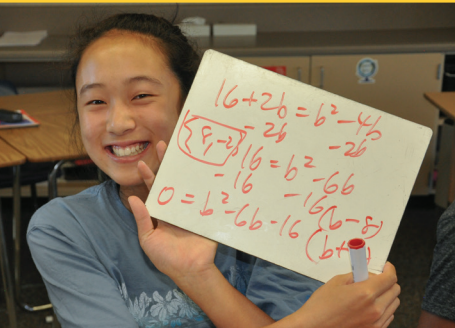 16+2b = b²-4b
-2b -2b
{8,-2} 16 = b²-6b
-16 -16
0 = b²-6b-16 (b-8)
(b+